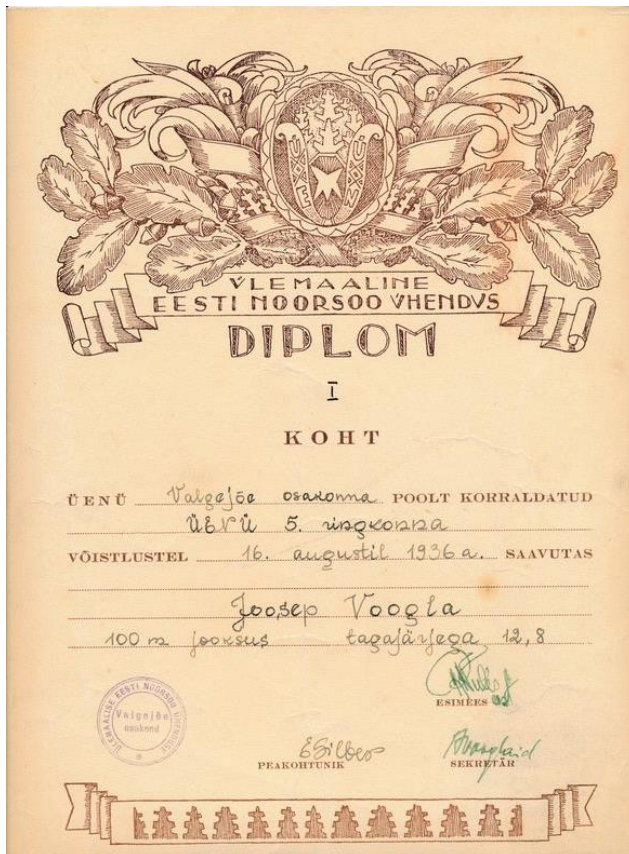 VLEMAALINE
EESTI NOORSOO VHENDVS
DIPLOM
I
KOHT
ÜENÜ Valgejõe osakonna POOLT KORRALDATUD
ÜENÜ 5. ringkonna
VÕISTLUSTEL 16. augustil 1936 a. SAAVUTAS
Joosep Voogla
100 m jooksus tagajärjega 12,8
ESIMEES
ÜLEMAALISE EESTI NOORSOO ÜHENDUSE
Valgejõe
osakond
ESilber
PEAKOHTUNIK SEKRETÄR